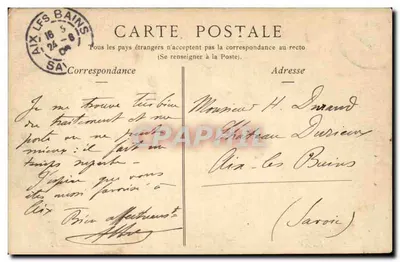 CARTE POSTALE
Tous les pays étrangers n'acceptent pas la correspondance au recto
(Se renseigner à la Poste).
AIX-LES-BAINS
24 - 6
SA
Correspondance
Je me trouve très bien
du traitement et me
porte on ne peut
mieux : il fait un
temps superbe
J'espère que vous
êtes aussi favorisé à
Aix
Bien affectueusᵗ
Adresse
Monsieur H. Durand
Aix-les-Bains
(Savoie)
EPHILL